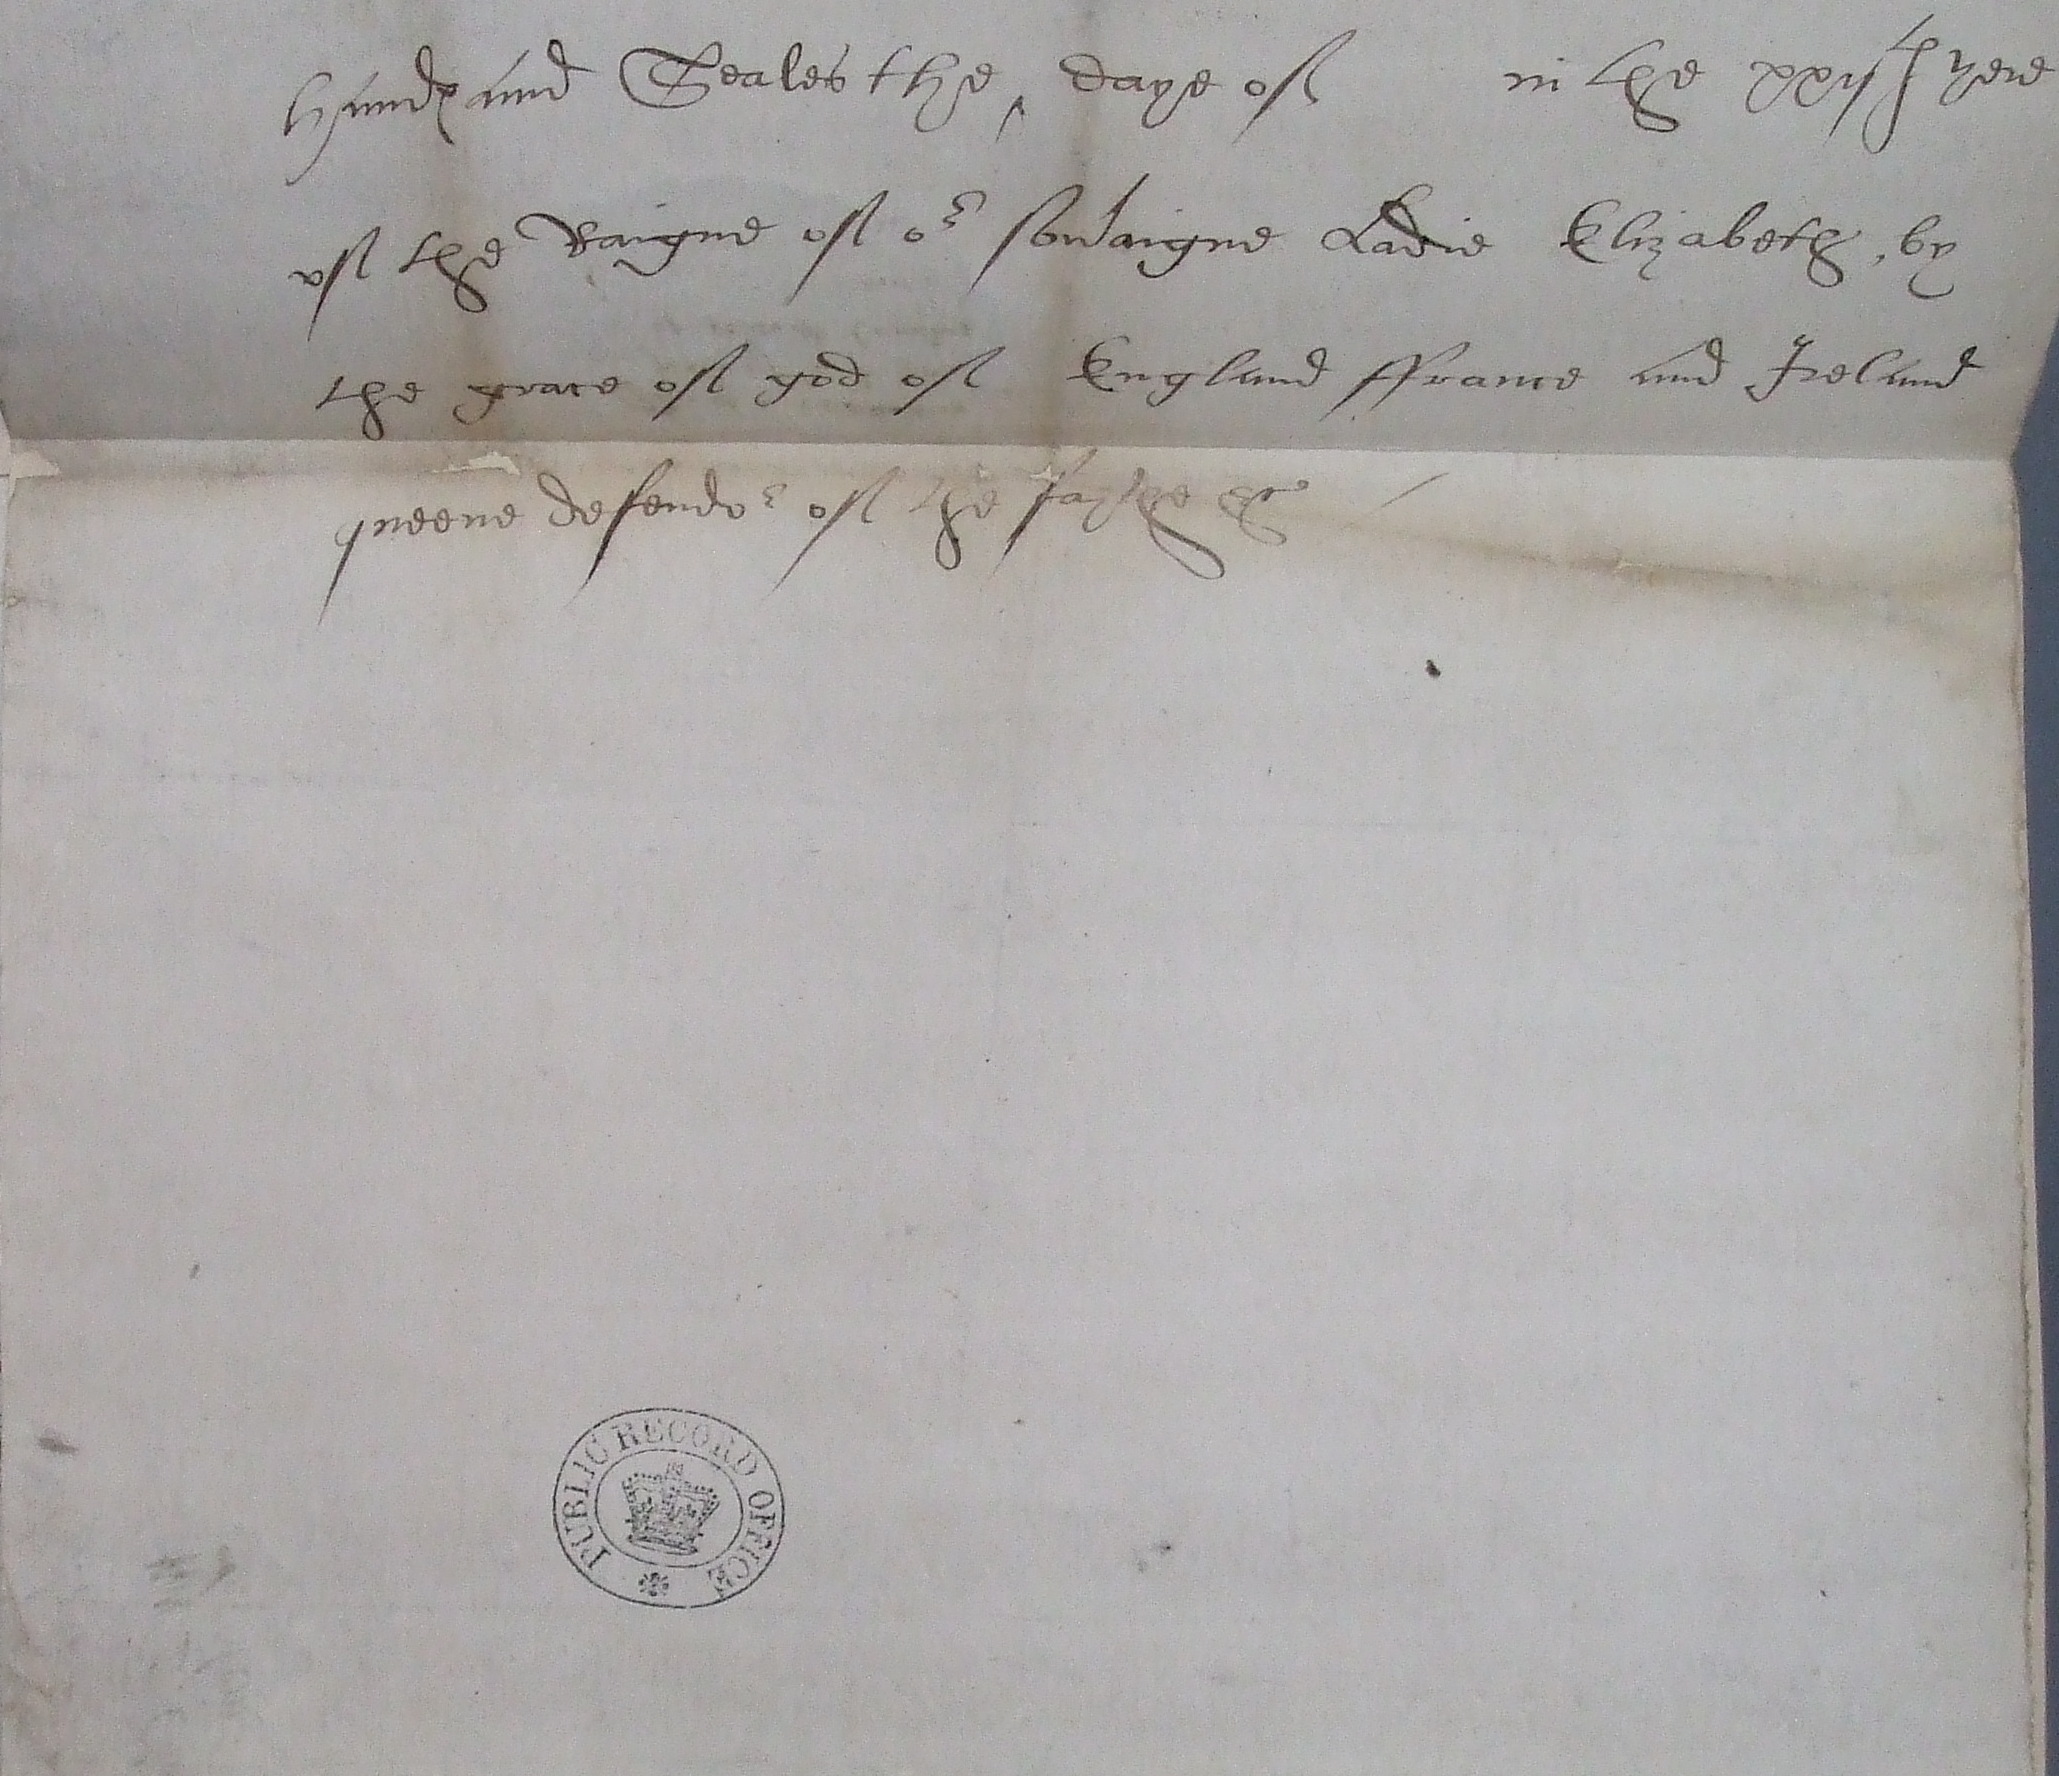 handes and Seales the ‸ daye of in the xxiijth yere
of the Raigne of or sovraigne Ladie Elizabeth, by
the grace of god of England ffrance and Ireland
queene defendor of the faythe &c /
PUBLIC RECORD OFFICE